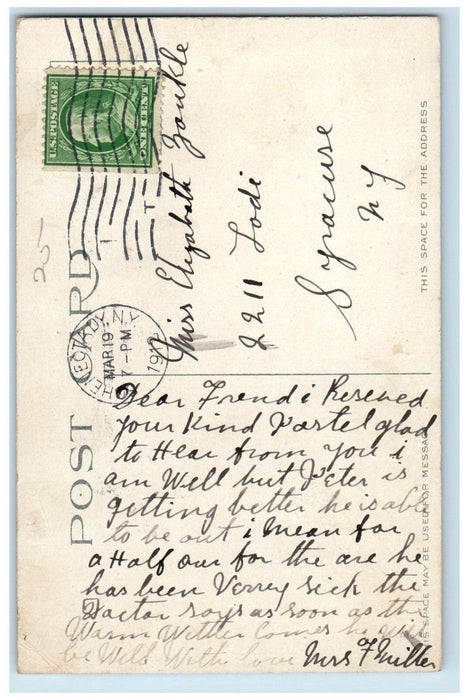 U.S. POSTAGE
ONE CENT
SCHENECTADY, N.Y.
MAR 19
7-PM
POST CARD
THIS SPACE FOR THE ADDRESS
THIS SPACE MAY BE USED FOR MESSAGE
25-
Miss Elizabeth Zonkle
2211 Lodi
Syracuse
NY
Dear Frend i Reseved
your Kind Postel glad
to Hear from you i
am Well but Peter is
getting better he is able
to be out i mean for
a Half our for the are he
has been Verrey sick the
Doctor says as soon as the
Warm Wetter Comes he will
be Well With love Mrs F Miller